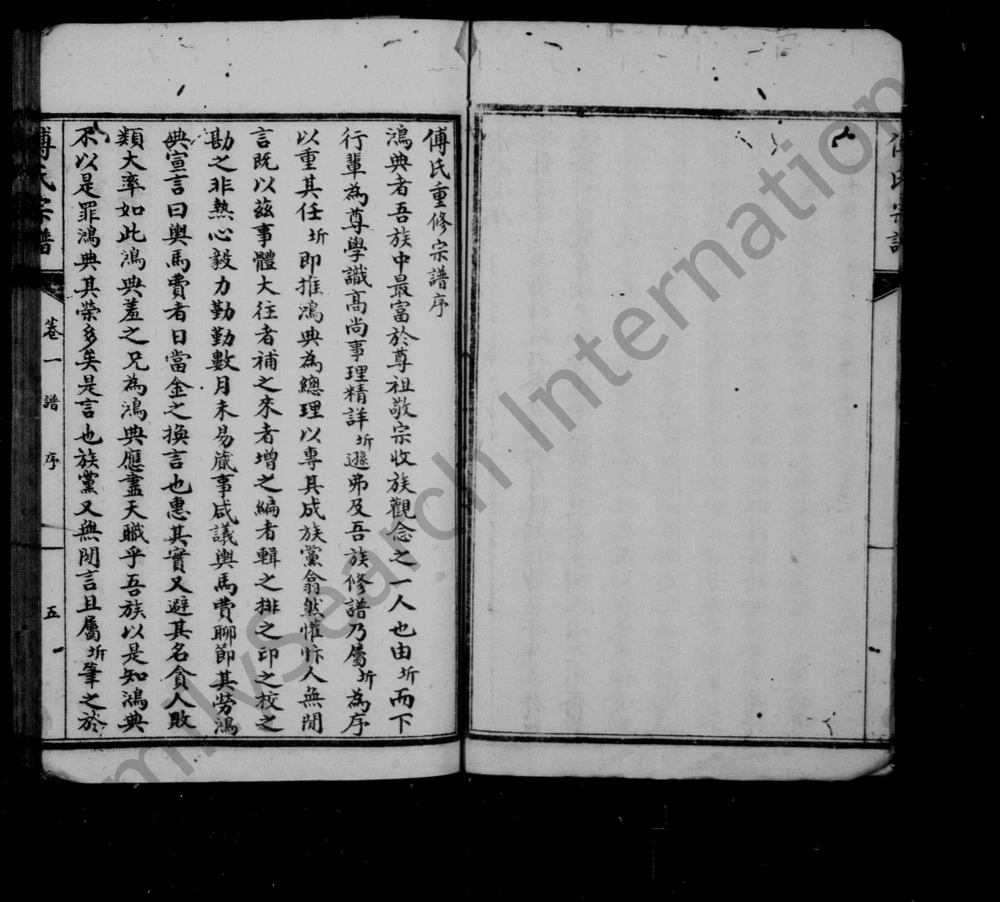 傅氏宗譜
傅氏重修宗譜序
鴻典者吾族中最富於尊祖敬宗收族觀念之一人也由圻而下
行輩為尊學識高尚事理精詳圻遜弗及吾族修譜乃屬圻為序
以重其任圻即推鴻典為總理以專其成族黨翕然懽忭人無閒
言既以茲事體大往者補之來者增之編者輯之排之印之校之
勘之非熱心毅力勤勤數月未易蕆事咸議輿馬費聊節其勞鴻
典宣言曰輿馬費者日當金之換言也惠其實又避其名貪人敗
類大率如此鴻典羞之兄為鴻典應盡天職乎吾族以是知鴻典
不以是罪鴻典其榮多矣是言也族黨又無閒言且屬圻筆之於
傅氏宗譜 卷一 譜序 五
FamilySearch International